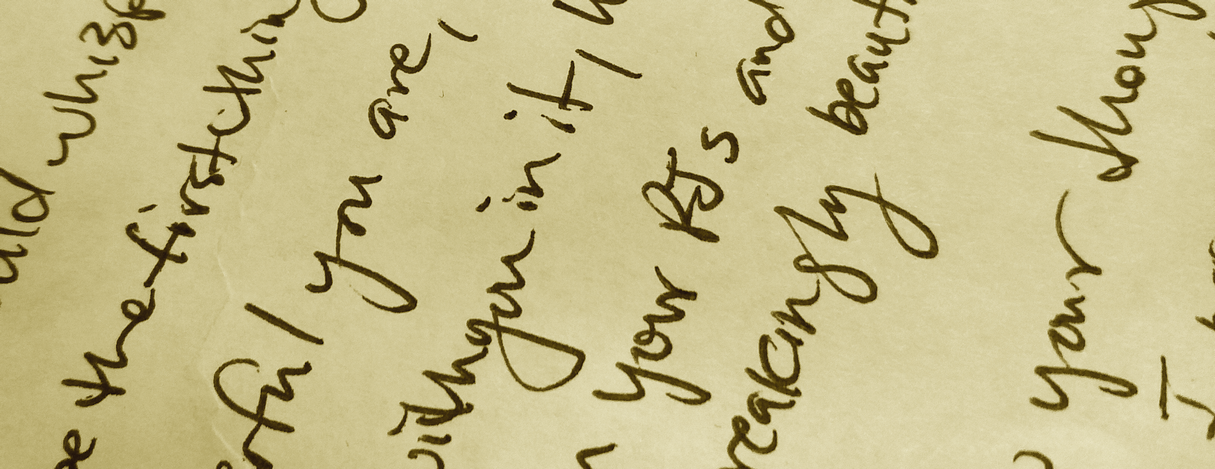 whisp
the first thin
you are,
with you in it,
your PJs and
reakingly beaut
your thou
I